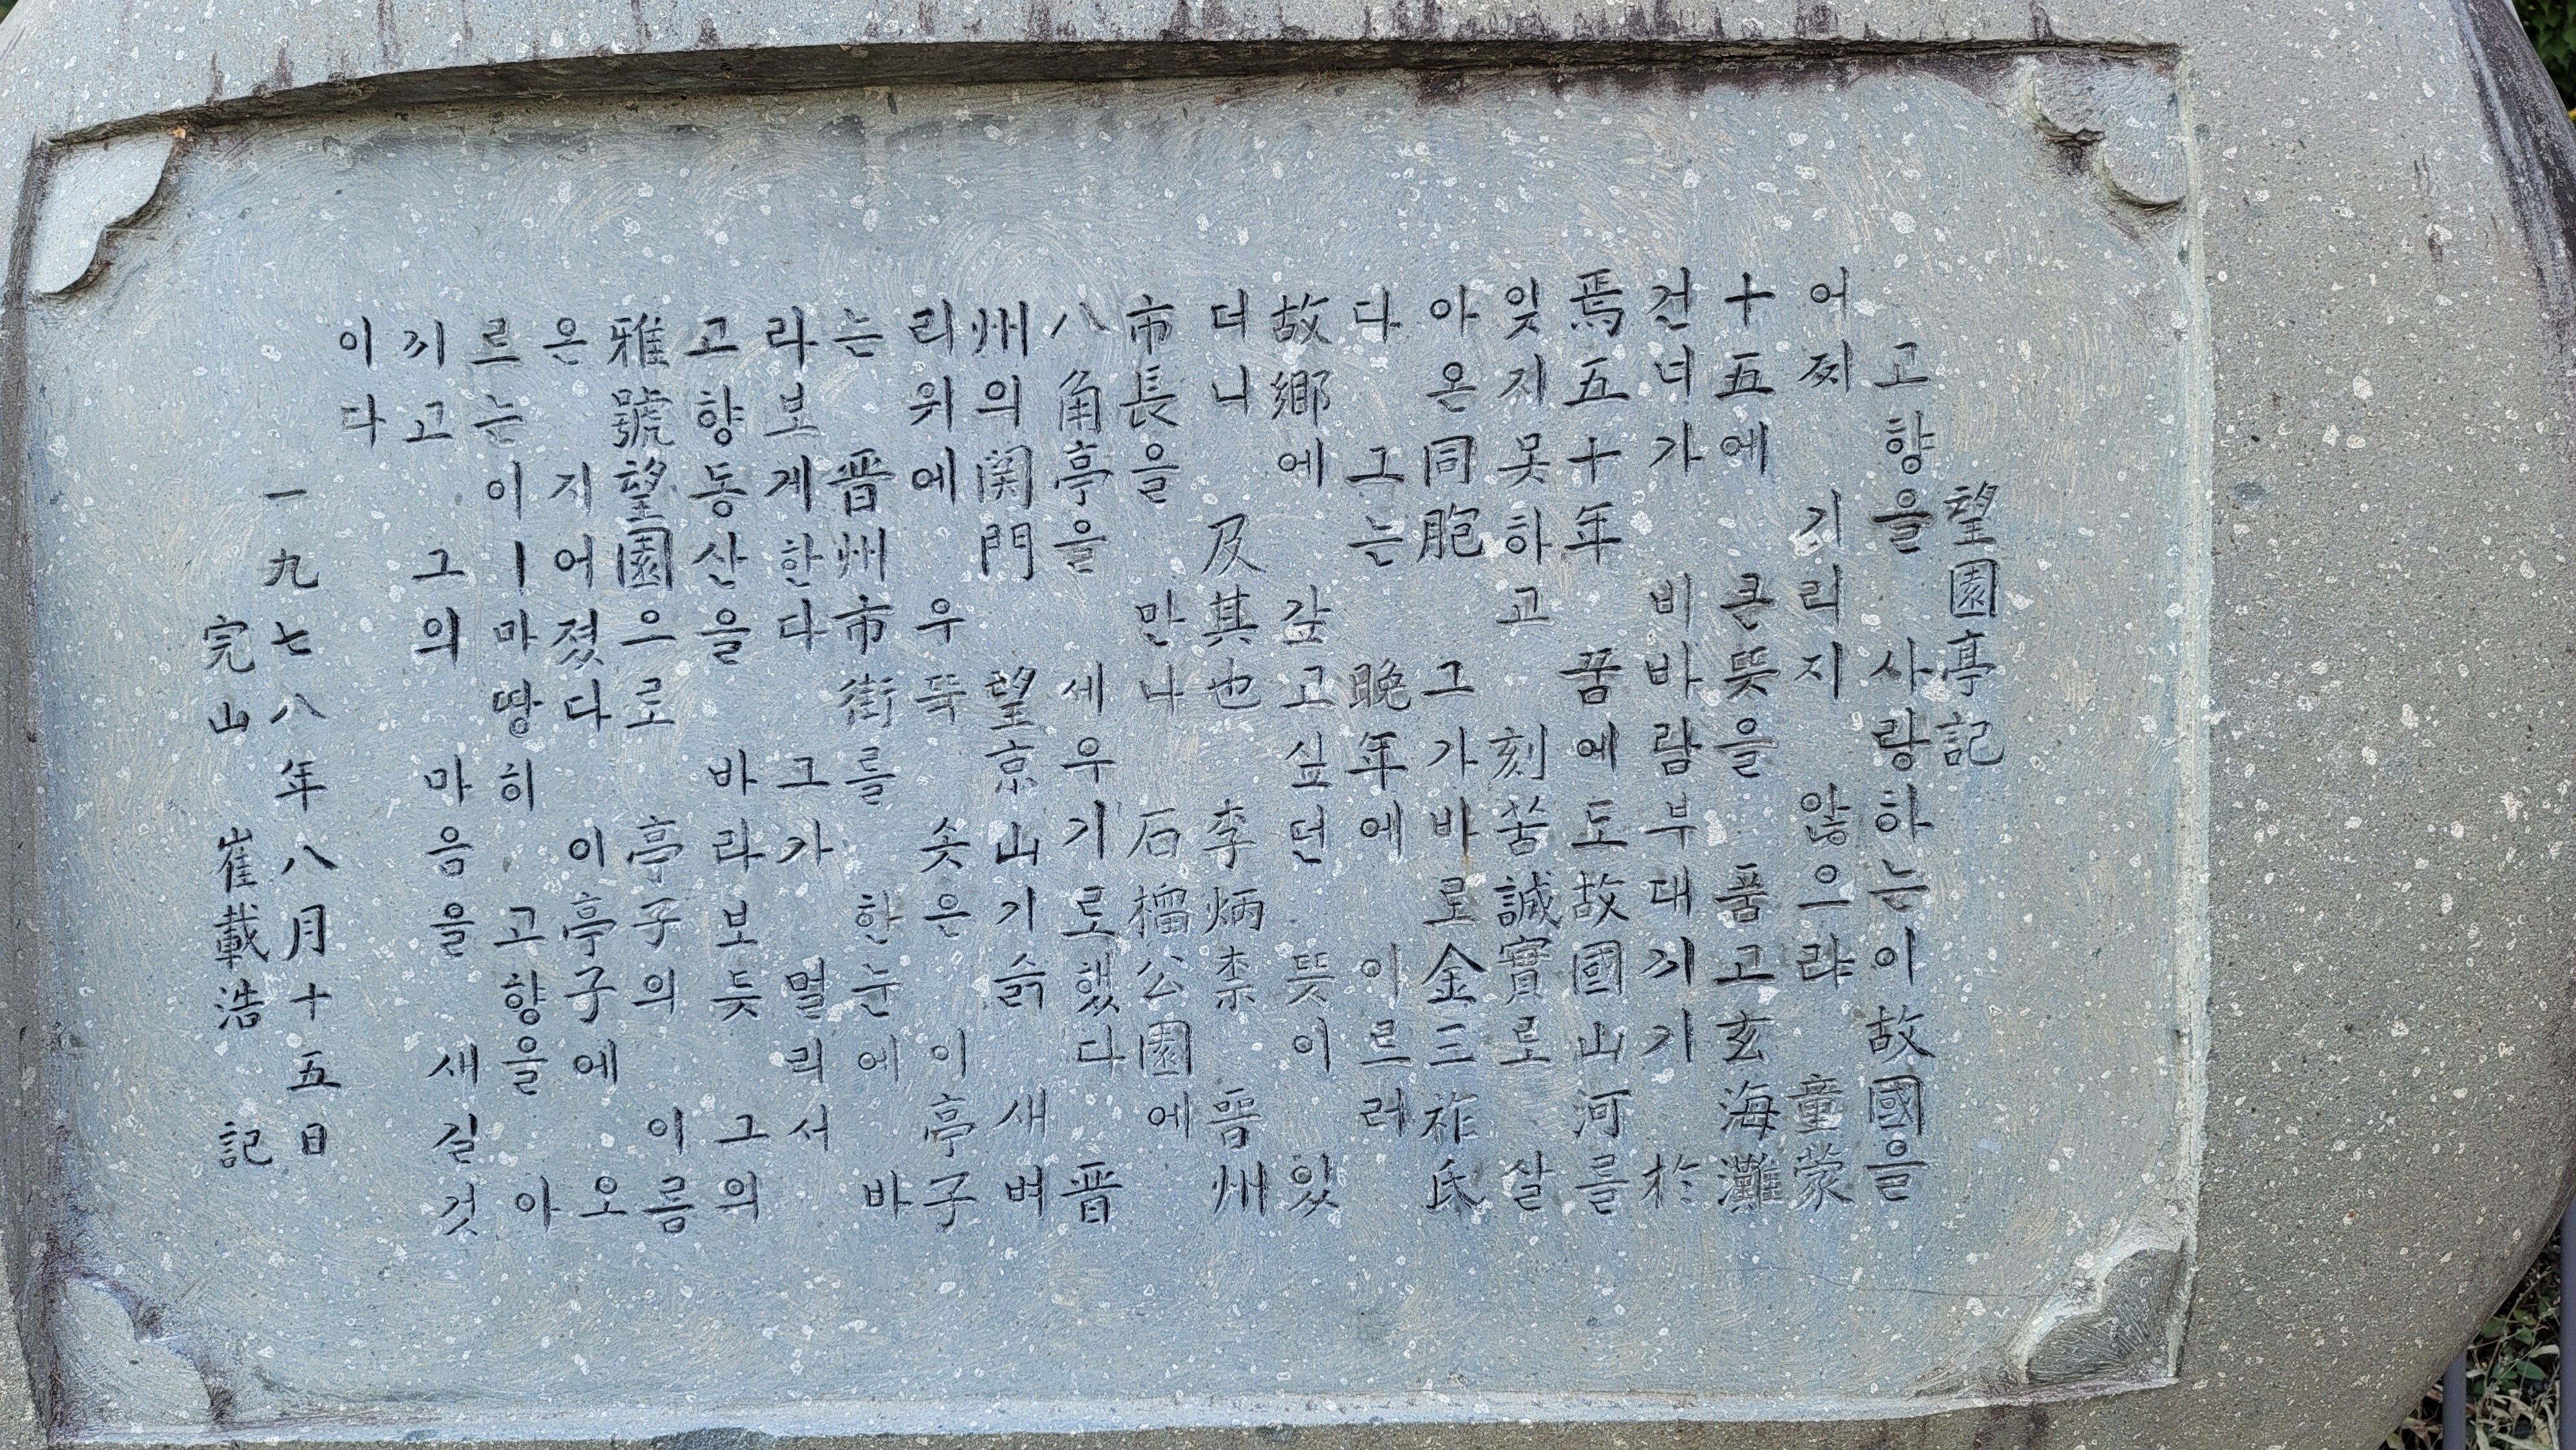 望園亭記
고향을 사랑하는이故國을
어찌 기리지 않으랴 童蒙
十五에 큰뜻을 품고玄海灘
건너가 비바람부대끼기 於
焉五十年 꿈에도故國山河를
잊지못하고 刻苦誠實로 살
아온同胞 그가바로金三祚氏
다 그는 晩年에 이르러
故鄕에 갚고싶던 뜻이 있
더니 及其也 李炳柰 晋州
市長을 만나 石榴公園에
八角亭을 세우기로했다 晋
州의関門 望京山기슭 새벼
리위에 우뚝 솟은 이亭子
는 晋州市街를 한눈에 바
라보게한다 그가 멀리서
고향동산을 바라보듯 그의
雅號望園으로 亭子의 이름
은 지어졌다 이亭子에 오
르는 이ㅣ마땅히 고향을 아
끼고 그의 마음을 새길 것
이다
一九七八年八月十五日
完山 崔載浩 記